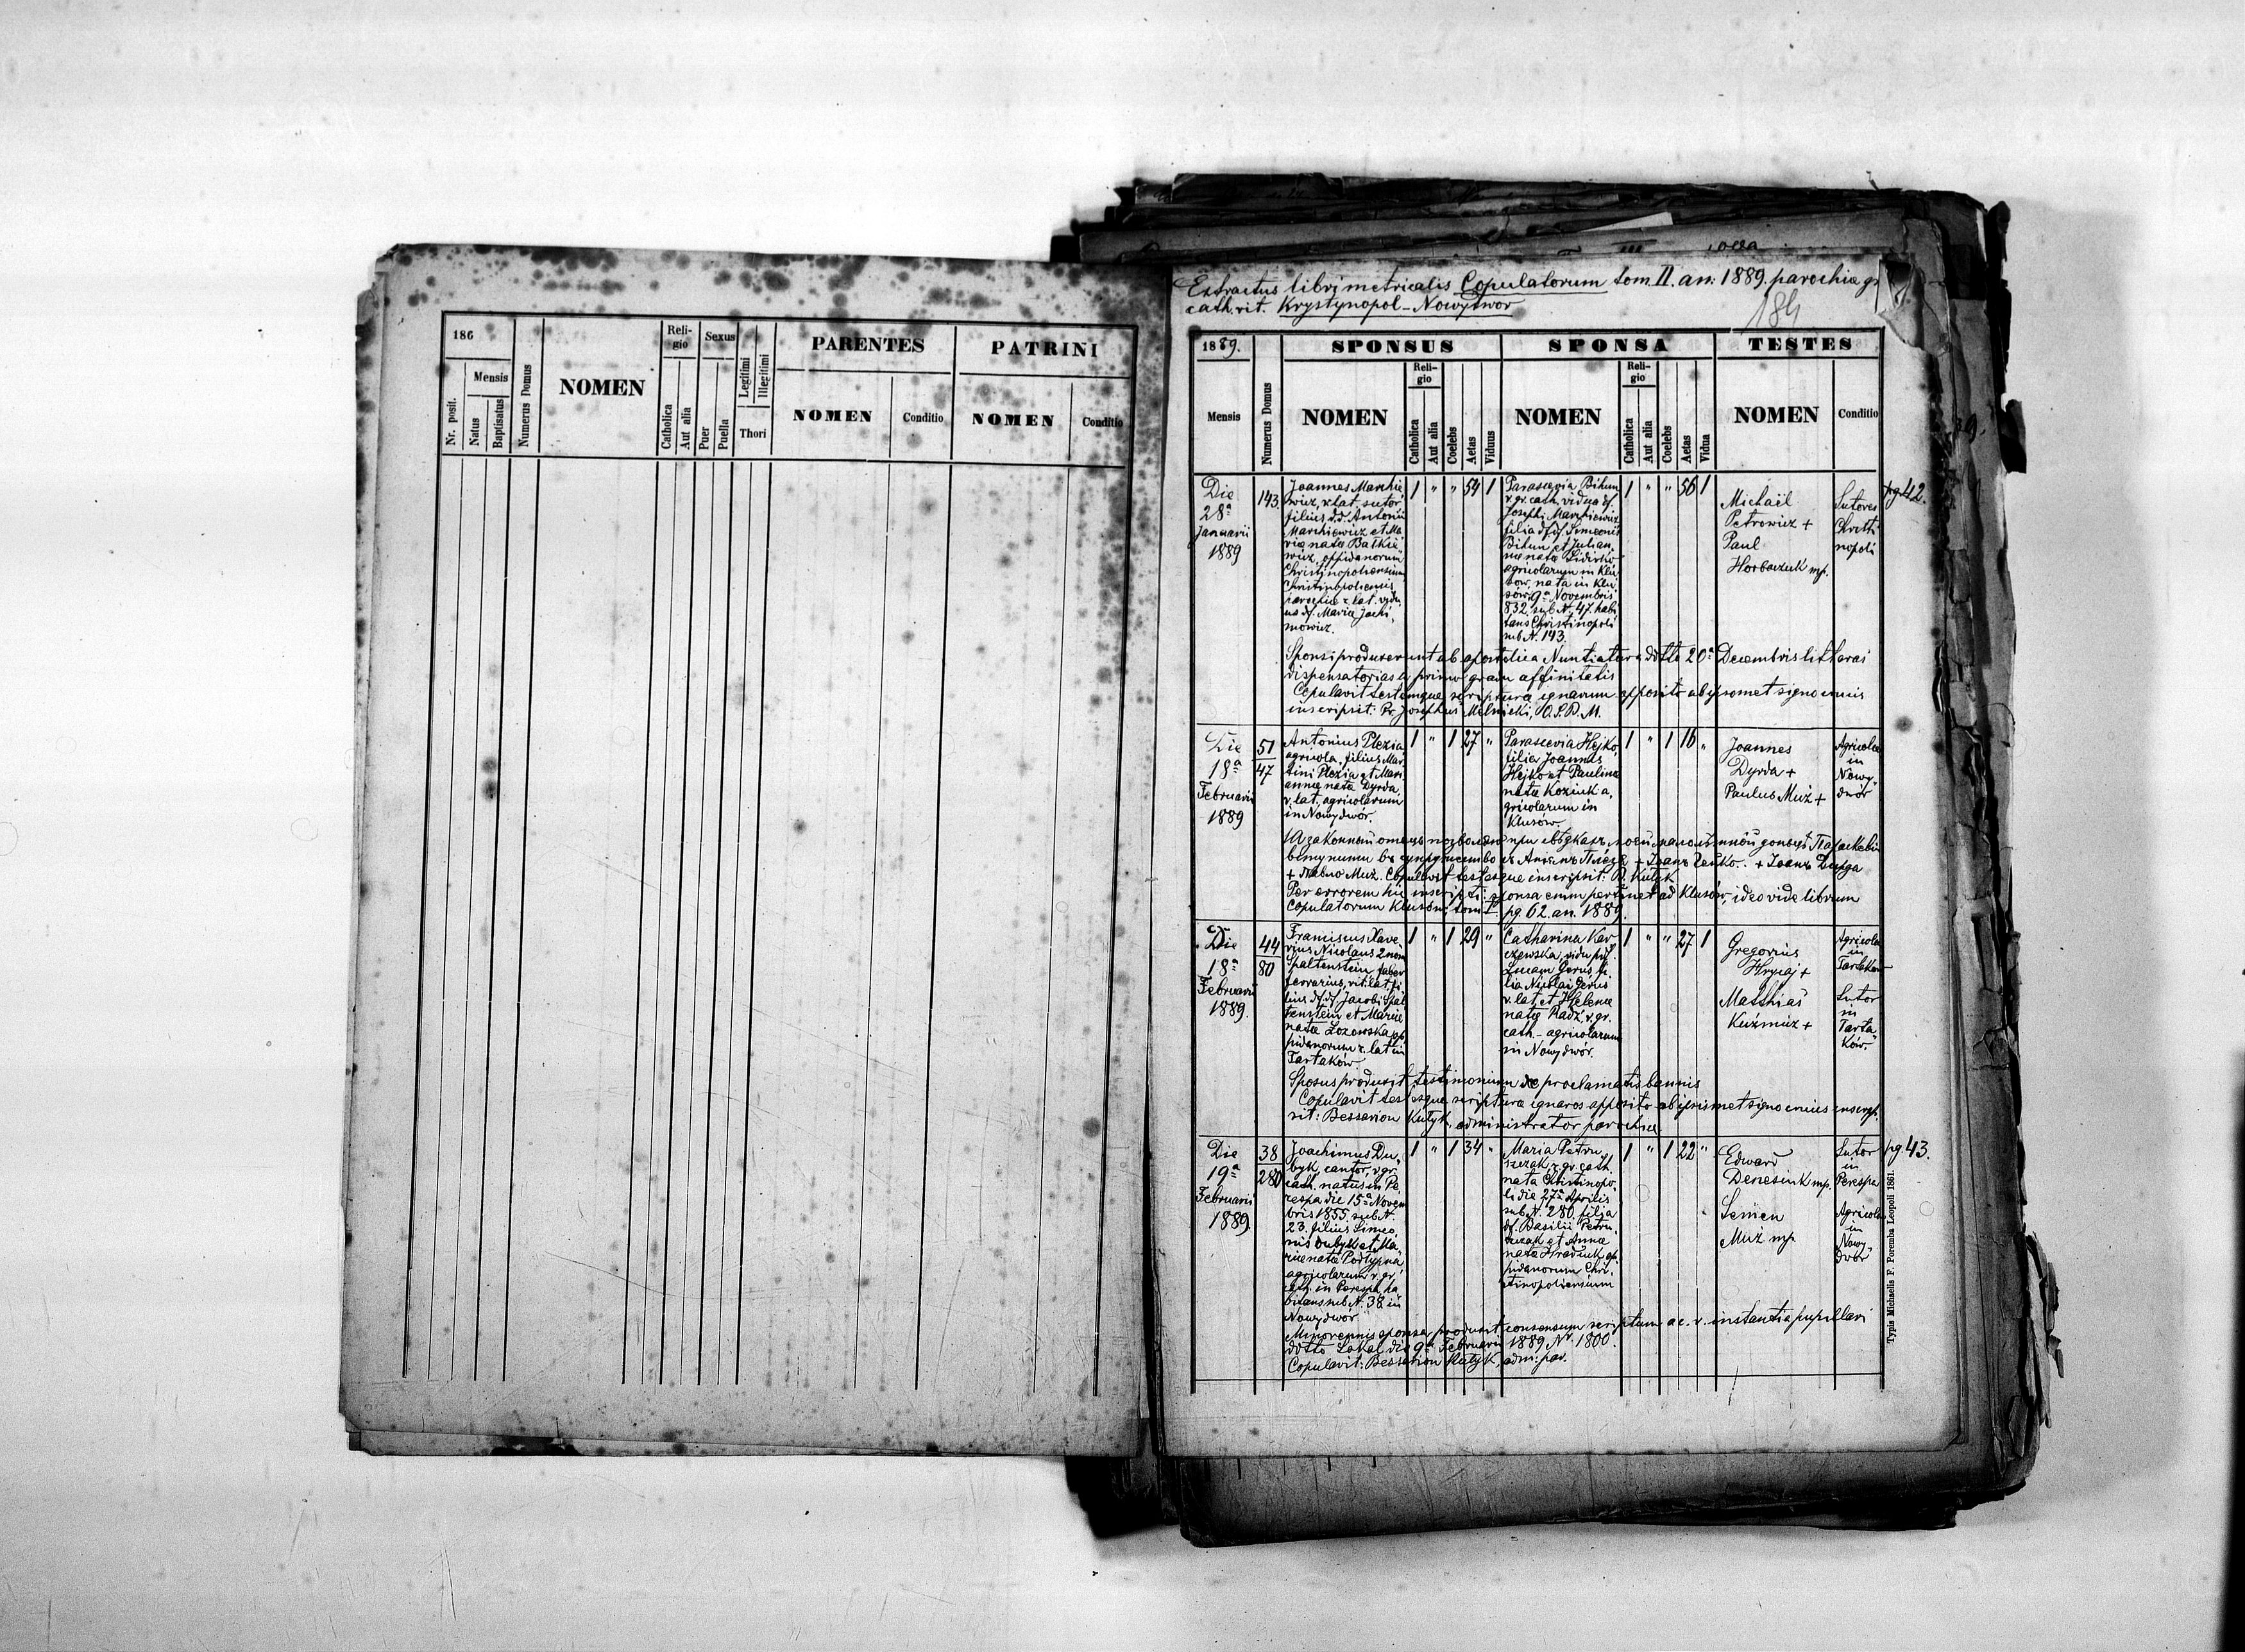 186
Mensis
Nr. posit.
Natus
Baptisatus
Numerus Domus
NOMEN
Reli-
gio
Catholica
Aut alia
Sexus
Puer
Puella
Legitimi
Illegitimi
Thori
PARENTES
NOMEN
Conditio
PATRINI
NOMEN
Conditio
Extractus libri metricalis Copulatorum tom. II. an: 1889. parochiae gr
cath. rit. Krystynopol – Nowydwor
184
1889.
Mensis
Numerus Domus
SPONSUS
NOMEN
Reli-
gio
Catholica
Aut alia
Coelebs
Aetas
Viduus
SPONSA
NOMEN
Reli-
gio
Catholica
Aut alia
Coelebs
Aetas
Vidua
TESTES
NOMEN
Conditio
Die
28a
Januarii
1889
143.
Joannes Marchie
wicz, r. lat. sutor
filius d.d. Antonii
Marchiewicz et Ma
riae natae Batkie
wicz, oppidanorum
Christinopoliensium
Christinopoliensis
parochiae r. lat. vidu
us df. Mariae Jachi
mowicz.
1 " " 54 1
Parascevia Bihun
r. gr. cath. vidua df.
Josephi Marchiewicz
filia df. df. Simeonis
Bihun et Julian
nae natae
agricolarum in Klu
sow, nata in Klu
sow 9a Novembris
832 sub N. 47. habi
tans Christinopoli
sub N. 143.
1 " " 56 1
Michaił
Petrowicz +
Paul
Horbaczuk mp.
Sutores
Christi
nopoli
pg. 42.
Sponsi produxerunt ab apostolica Nuntiatura ddtto 20a Decembris litteras
dispensatorias a primo gradu affinitatis
Copulavit testemque scripturae ignarum apposito ab ipsomet signo crucis
inscripsit: Pr. Josephus Melnicki, O.S.B.M.
Die
18a
Februarii
1889
51
47
Antonius Plezia
agricola, filius Mar
tini Plezia et Mari
annae nata Dyrda,
r. lat. agricolarum
in Nowydwór.
1 " 1 27 "
Parascevia Hejko
filia Joannis
Hejko et Paulinae
natae Koziuk a,
gricolarum in
Klusów.
1 " 1 16 "
Joannes
Dyrda +
Paulus Muż +
Agricolae
in
Nowy
dwór
+ Павло Муж. Copulavit testesque inscripsit: B. Kutyk
Per errorem hic inscripti: sponsa enim pertinet ad Klusów, ideo vide librum
Copulatorum Klusow: tom I. pg. 62. an. 1889.
Die
18a
Februarii
1889.
44
80
Franciscus Xave
rius Nicolaus 2 nom
Spaltenstein, faber
ferrarius, rit. lat. fi
lius df. df. Jacobi Spal
tenstein et Mariae
natae Lozowska op
pidanorum r. lat in
Tartaków.
1 " 1 29 "
Catharina Kar
czewska, vidu
Lucam Gerus fi
lia Nicolai Gerus
r. lat. et Helenae
natae Radz, r. gr.
cath. – agricolarum
in Nowydwór.
1 " " 27 1
Gregorius
Hrycaj +
Matthias
Kuźmicz +
Agricola
in
Tartaków
Sutor
in
Tarta
ków.
Sposus produxit testimonium de proclamatis bannis
Copulavit testesque scripturae ignaros apposito ab ipsismet signo crucis inscrip.
sit: Bessarion Kutyk, administrator parochiae.
Die
19a
Februarii
1889.
38
280
Joachimus Du,
byk, cantor, r. gr.
cath. natus in Pe
respa die 15a Novem
bris 1855. sub N.
23. filius Simeo
nis Dubyk et Ma
riae natae Podłypna
agricolarum r. gr.
cath. in Perespa, ha
bitans sub N. 38. in
Nowydwór
1 " 1 34 "
Maria Petru
szczak, r. gr. cath.
nata Christinopo
li die 27a Aprilis
sub N. 280. filia
df. Basilii Petru
szczak et Annae
natae Hradiuk op
pidanorum Chri
stinopoliensium
1 " 1 22 "
Edward
Denesiuk mp.
Semen
Muz mp
Sutor
in
Perespa
Agricola
in
Nowy
Dwór
pg. 43.
Minorennis sponsa produxit consensum scriptum a c. r. instantia pupillari
ddtto Sokal die 9a Februarii 1889 Nr. 1800.
Copulavit: Bessarion Kutyk, adm: par.
Typis Michaelis F. Poremba Leopoli 1861.